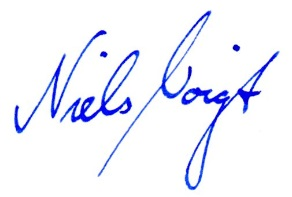 Niels Voigt